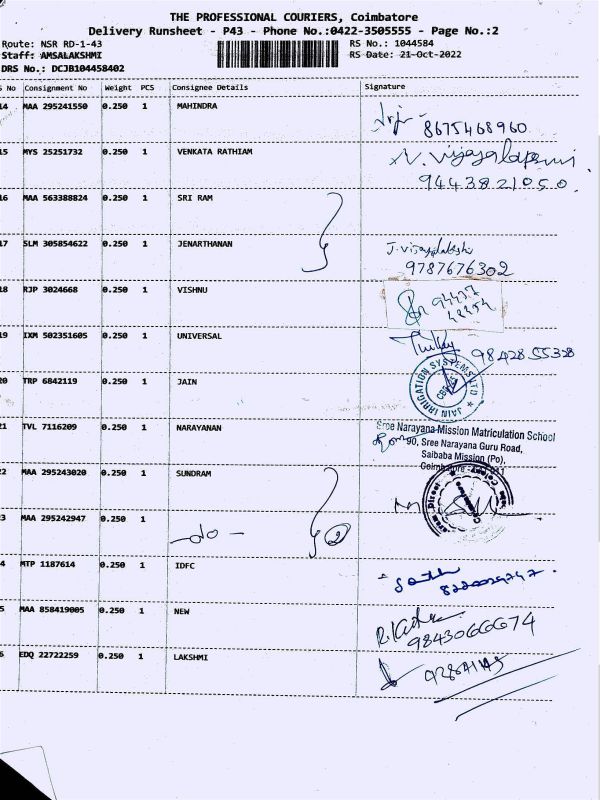 THE PROFESSIONAL COURIERS, Coimbatore
Delivery Runsheet - P43 - Phone No.:0422-3505555 - Page No.:2
Route: NSR RD-1-43 RS No.: 1044584
Staff: AMSALAKSHMI RS Date: 21-Oct-2022
DRS No.: DCJB104458402
S No Consignment No Weight PCS Consignee Details Signature
14 MAA 295241550 0.250 1 MAHINDRA
8675468960
15 MYS 25251732 0.250 1 VENKATA RATHIAM N. Vijayalapsmi
9443821050.
16 MAA 563388824 0.250 1 SRI RAM
17 SLM 305854622 0.250 1 JENARTHANAN J. vijayalakshi
9787676302
18 RJP 3024668 0.250 1 VISHNU
19 IXM 502351605 0.250 1 UNIVERSAL 9842855328
20 TRP 6842119 0.250 1 JAIN JAIN IRRIGATION SYSTEMS LTD
21 TVL 7116209 0.250 1 NARAYANAN Sree Narayana Mission Matriculation School
90, Sree Narayana Guru Road,
Saibaba Mission (Po),
Coimbatore
22 MAA 295243020 0.250 1 SUNDRAM
23 MAA 295242947 0.250 1 -do- 2
24 MTP 1187614 0.250 1 IDFC
25 MAA 858419005 0.250 1 NEW
9843066674
26 EDQ 22722259 0.250 1 LAKSHMI